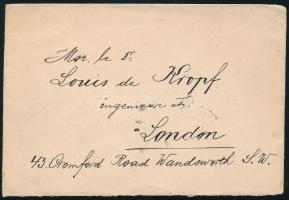 Msr. le Dr.
Louis de Kropf
ingenieur etc
à London
43. Cromford Road Wandsworth S. W.